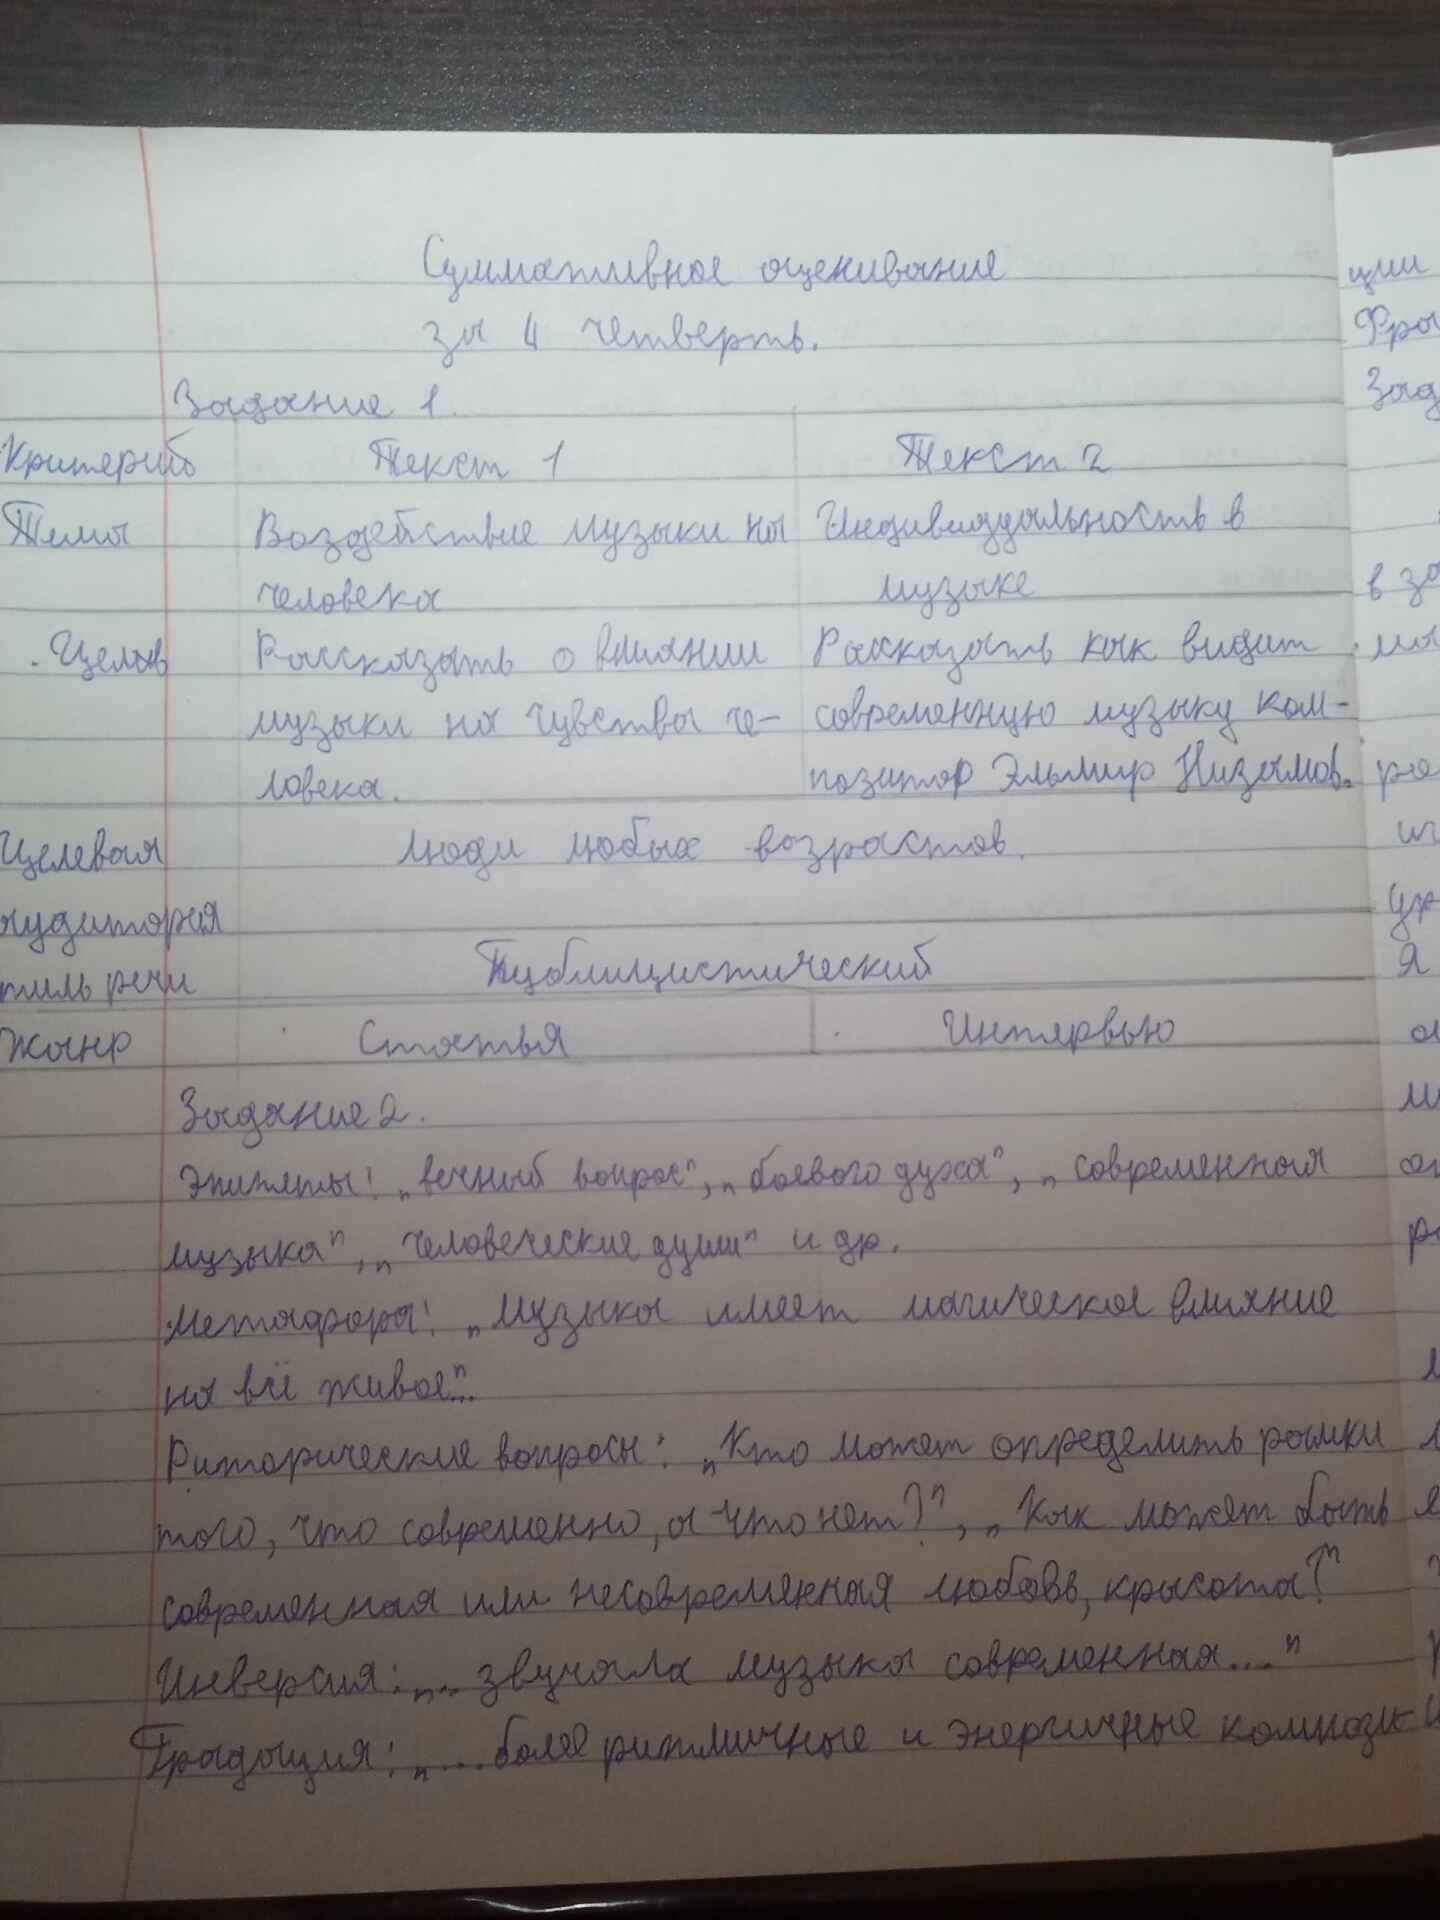 Суммативное оценивание
за 4 четверть.
Задание 1.
Критерий Текст 1 Текст 2
Тема Воздействие музыки на Индивидуальность в
человека музыке
Целов Рассказать о влиянии Рассказать как видит
музыки на чувства че- современную музыку ком-
ловека. позитор Эльмир Низамов.
Целевая люди любых возрастов.
аудитория
тиль речи Публицистический
Жанр Статья Интервью
Задание 2.
Эпитеты: „вечный вопрос", „боевого духа", „современная
музыка", „человеческие души" и др.
Метафора: „Музыка имеет магическое влияние
на всё живое"..
Риторические вопросы: „Кто может определить рамки
того, что современно, а что нет?", „Как может быть
современная или несовременная любовь, красота?"
Инверсия: „... звучала музыка современная...."
Градация: „....более ритмичные и энергичные компози-
ции
Фра
Зад
в за